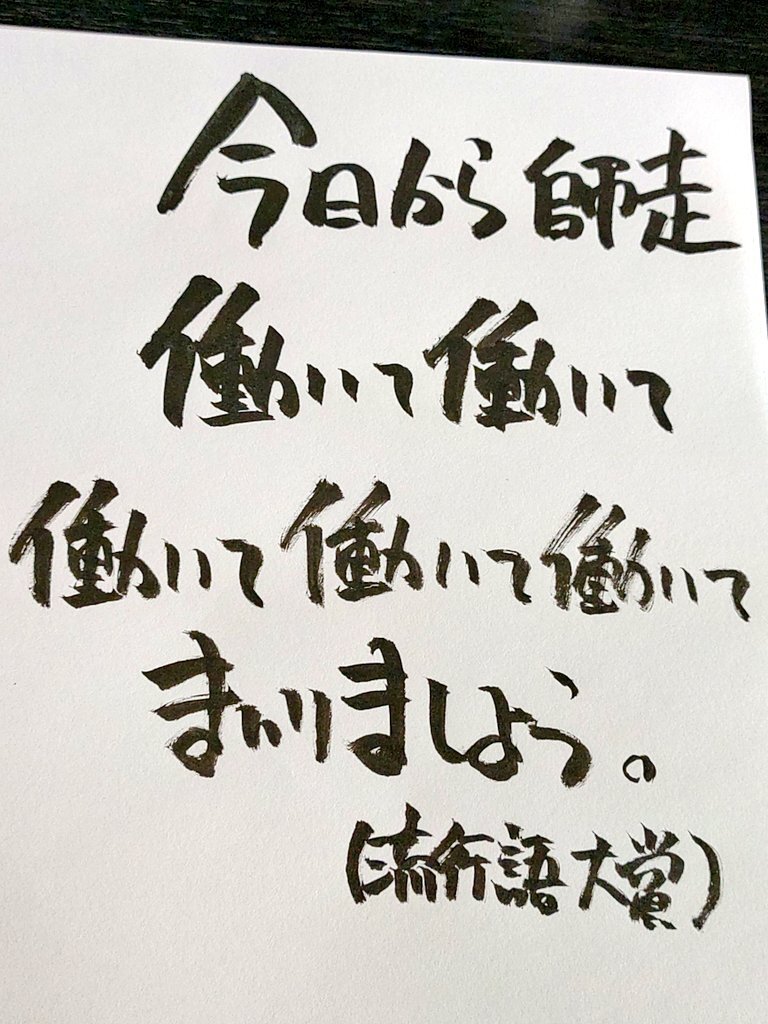 今日から師走
働いて働いて
働いて働いて働いて
まいりましょう。
(流行語大賞)